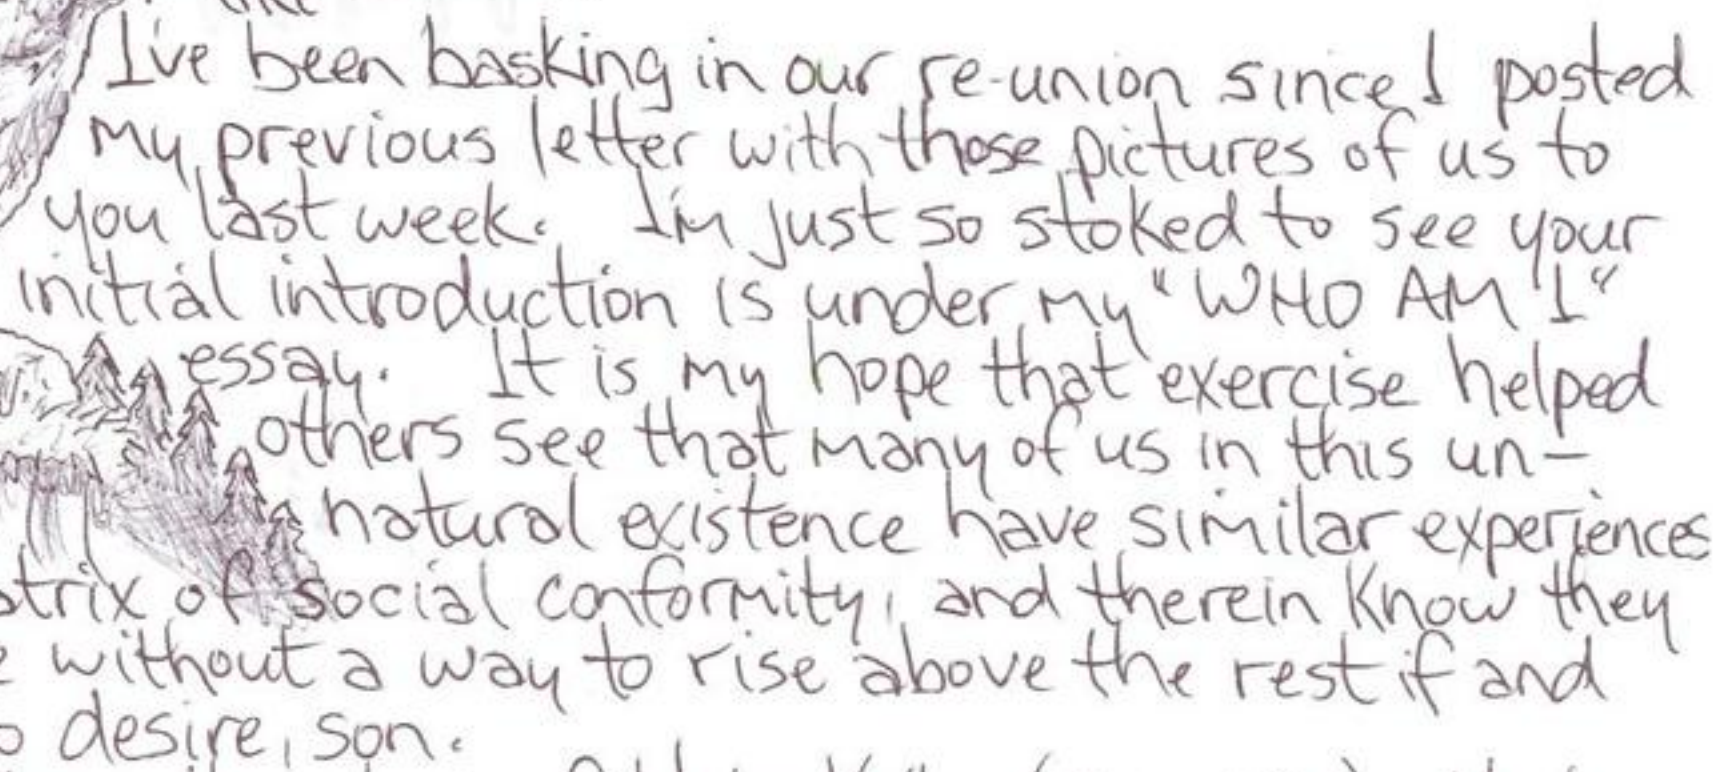 I've been basking in our re-union since I posted
my previous letter with those pictures of us to
you last week. I'm just so stoked to see your
initial introduction is under my "WHO AM I"
essay. It is my hope that exercise helped
others see that many of us in this un-
natural existence have similar experiences
of social conformity, and therein know they
without a way to rise above the rest if and
desire, son.